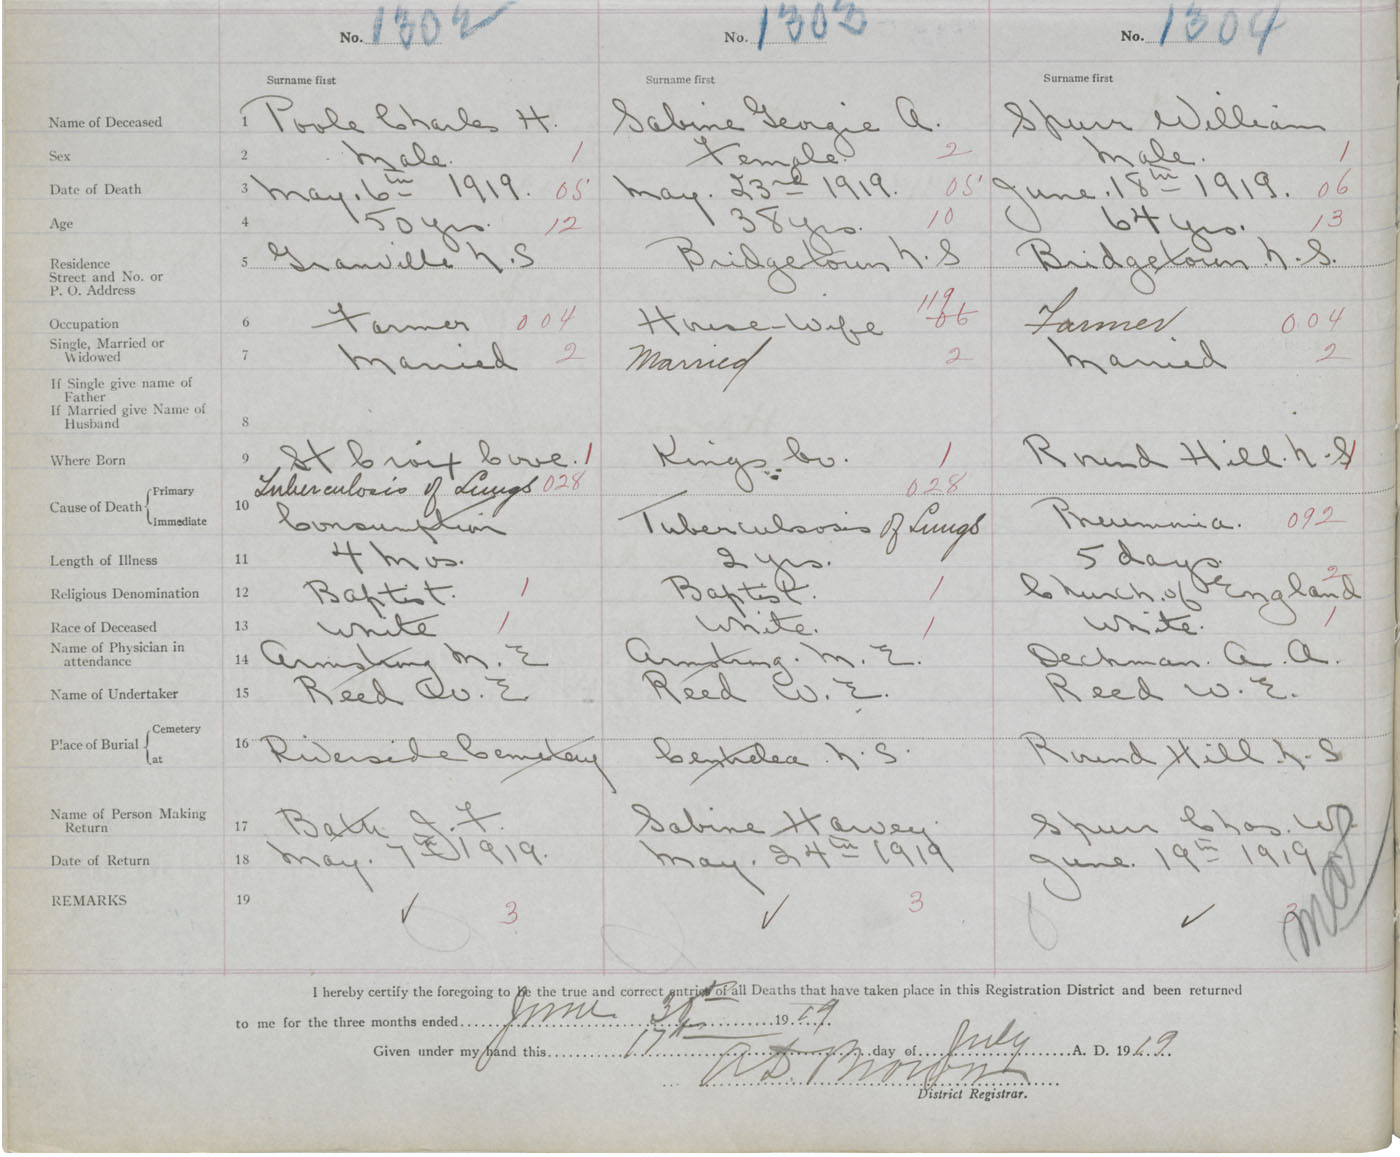 No. 1302 No. 1303 No. 1304
Surname first Surname first Surname first
Name of Deceased 1 Poole Charles H. Sabine Georgie A. Spurr William
Sex 2 Male. 1 Female. 2 Male. 1
Date of Death 3 May. 6th 1919. 05 May. 23rd 1919. 05 June. 18th 1919. 06
Age 4 50 yrs. 12 38 yrs. 10 64 yrs. 13
Residence
Street and No. or
P. O. Address 5 Granville N.S Bridgetown N.S Bridgetown. N.S.
119
Occupation 6 Farmer 004 House-Wife 06 Farmer 0.04
Single, Married or
Widowed 7 Married 2 Married 2 Married 2
If Single give name of
Father
If Married give Name of
Husband 8
Where Born 9 St Croix Cove. 1 Kings Co. 1 Round Hill. N.S 1
Cause of Death Primary Tuberculosis of Lungs 028 028
10
Immediate Consumption Tuberculsosis of Lungs Pneumonia. 092
Length of Illness 11 4 Mos. 2 yrs. 5 days.
Religious Denomination 12 Baptist. 1 Baptist. 1 Church. of England 2
Race of Deceased 13 White 1 White. 1 White. 1
Name of Physician in
attendance 14 Armstrong M. E Armstrong. M. E. Deckman. A. A.
Name of Undertaker 15 Reed W. E Reed W. E. Reed W. E.
Place of Burial Cemetery
at 16 Riverside Cemetery Centrelea. N.S. Round Hill. N.S
Name of Person Making
Return 17 Bath J. F. Sabine Harvey. Spurr Chas. W.
Date of Return 18 May. 7th 1919. May. 24th 1919 June. 19th 1919
REMARKS 19 ✓ 3 ✓ 3 ✓ 3
I hereby certify the foregoing to be the true and correct entries of all Deaths that have taken place in this Registration District and been returned
to me for the three months ended June 30th 1919
Given under my hand this 17th day of July A. D. 1919
District Registrar.